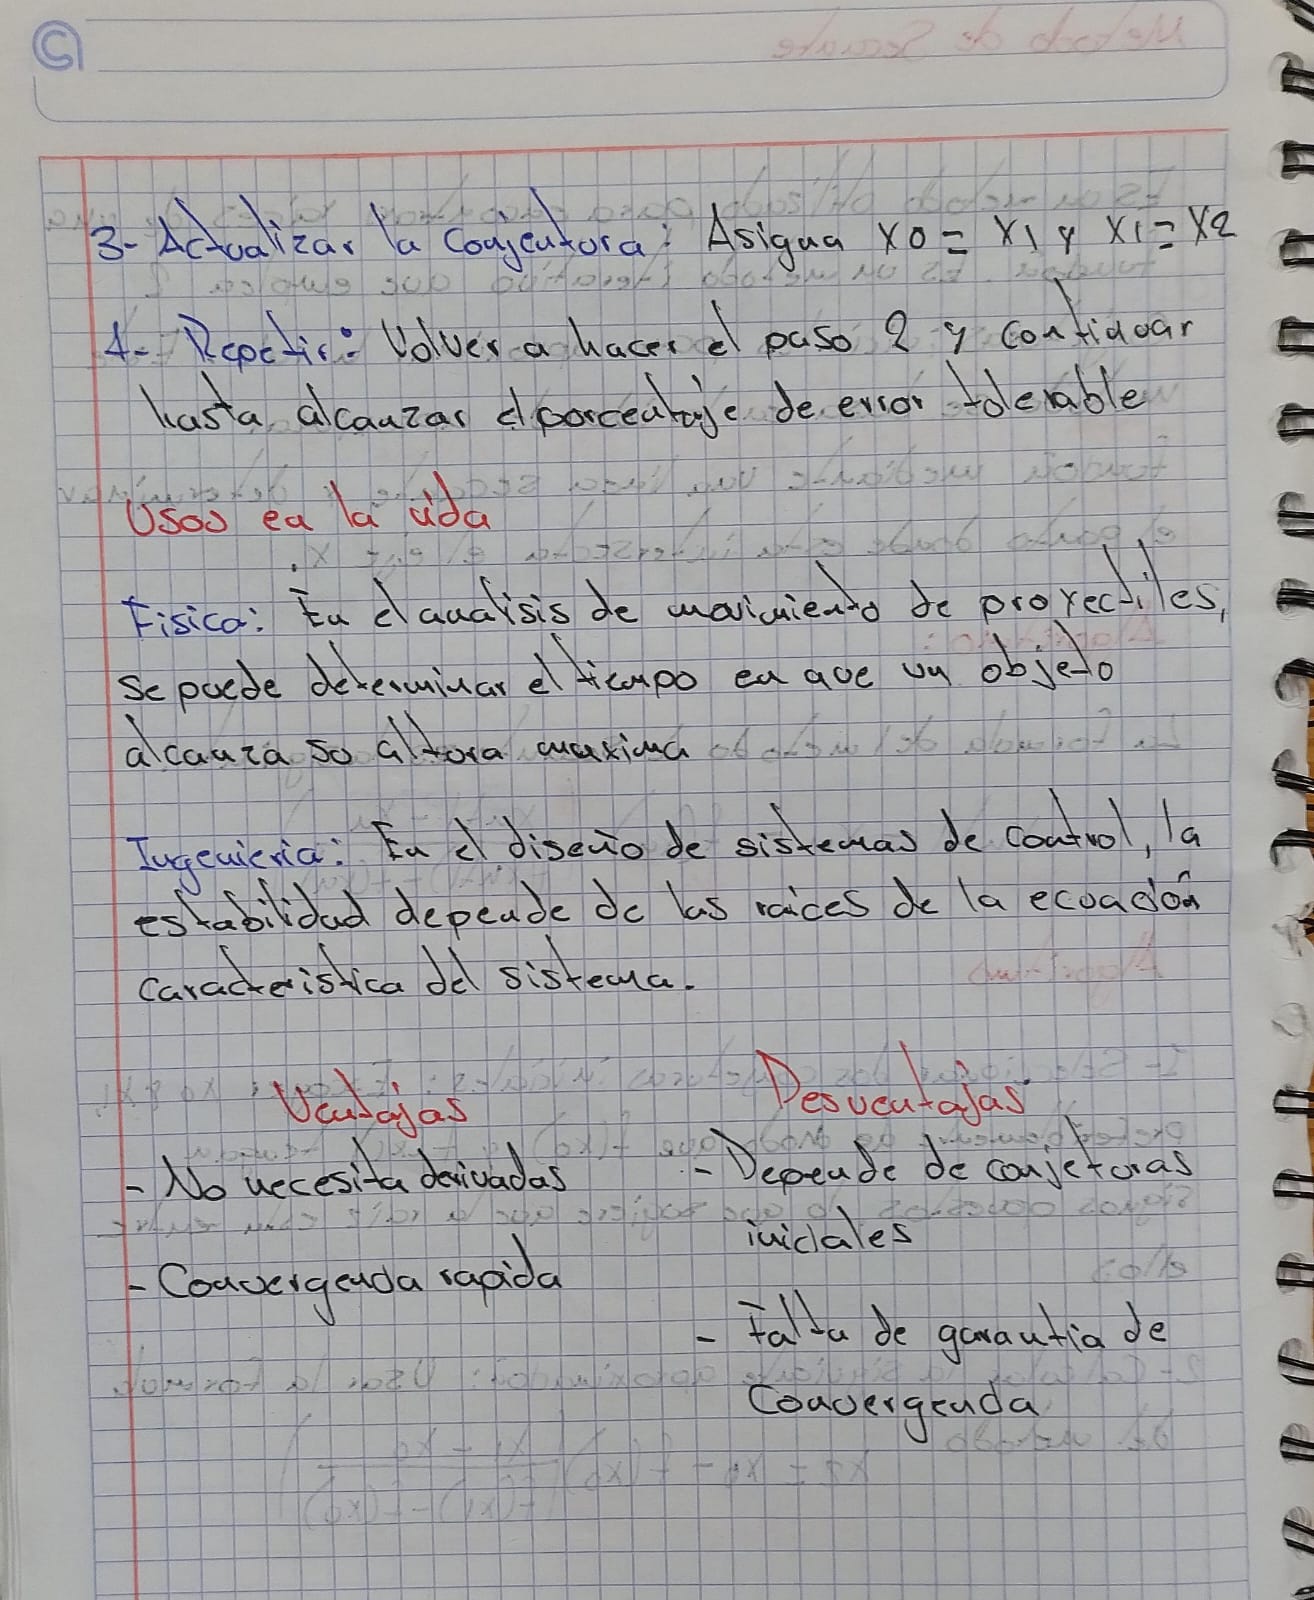 3- Actualizar la Conjentura: Asigna x0 = x1 y x1 = x2
4- Repetir: Volver a hacer el paso 2 y continuar
hasta alcanzar el porcentaje de error tolerable
Usos en la vida
Fisica: En el analisis de movimiento de proyectiles,
se puede determinar el tiempo en que un objeto
alcanza su altura maxima
Ingenieria: En el diseño de sistemas de control, la
estabilidad depende de las raices de la ecuación
caracteristica del sistema.
Ventajas
- No necesita derivadas
- Convergencia rapida
Desventajas
- Depende de conjeturas
iniciales
- Falta de garantia de
Convergencia